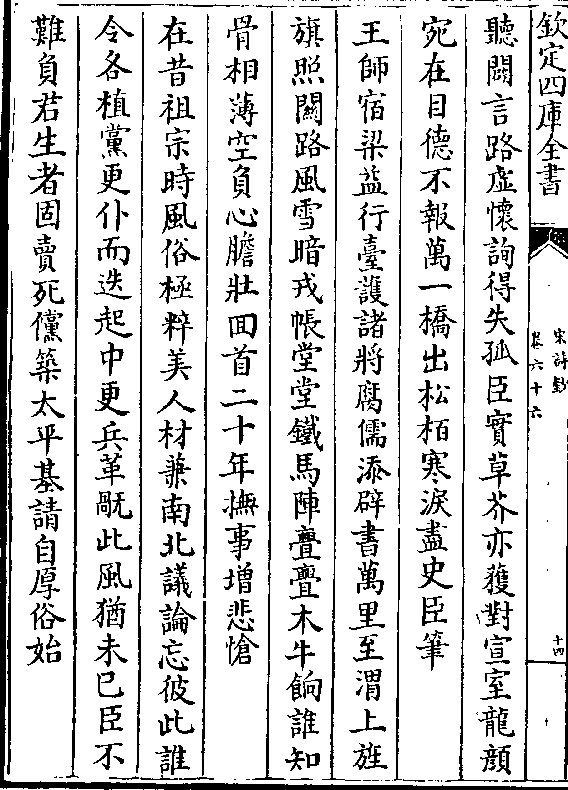 欽定四庫全書
宋詩鈔
卷六十六
十四
聽闢言路虚懐詢得失孤臣實草芥亦獲對宣室龍顔
宛在目德不報萬一橋出松栢寒淚盡史臣筆
王師宿梁益行臺䕶諸將腐儒添辟書萬里至渭上旌
旗照闗路風雪暗戎帳堂堂鐵馬陣亹亹木牛餉誰知
骨相薄空負心膽壯回首二十年撫事增悲愴
在昔祖宗時風俗極粹美人材兼南北議論忘彼此誰
令各植黨更仆而迭起中更兵革禍此風猶未已臣不
難負君生者固賣死儻築太平基請自厚俗始